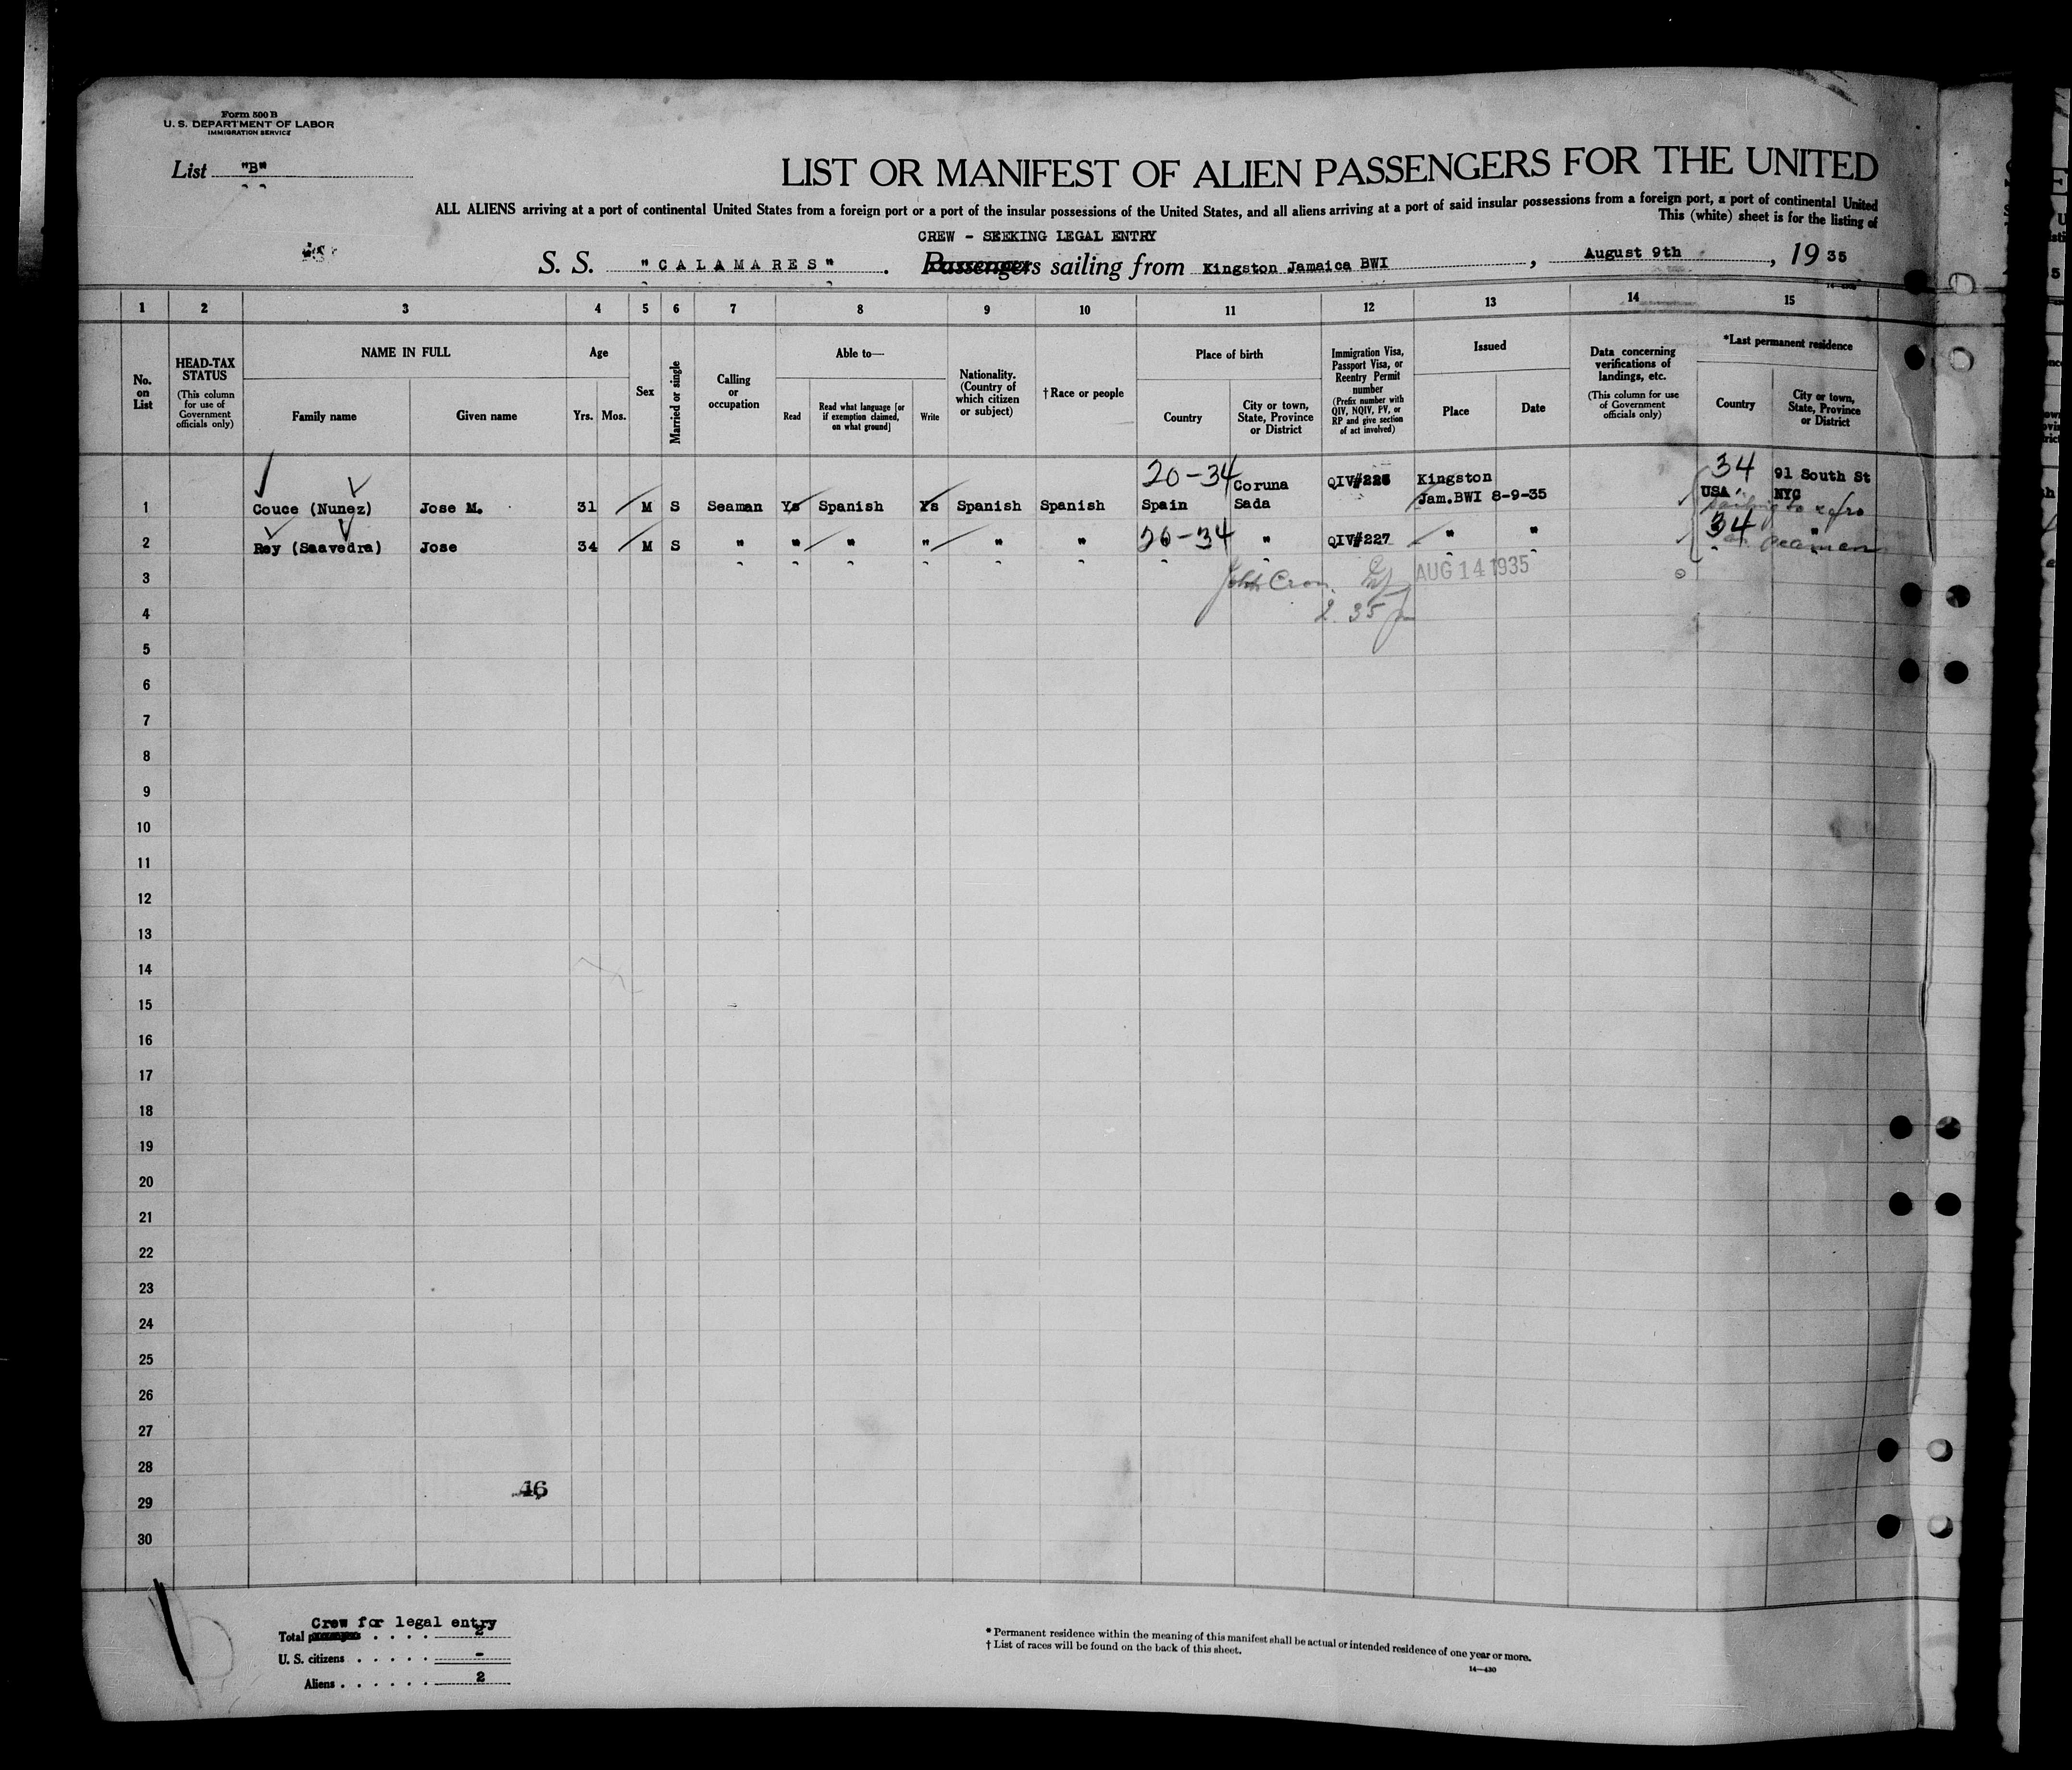 Form 500 B
U. S. DEPARTMENT OF LABOR
IMMIGRATION SERVICE
List "B"
LIST OR MANIFEST OF ALIEN PASSENGERS FOR THE UNITED
ALL ALIENS arriving at a port of continental United States from a foreign port or a port of the insular possessions of the United States, and all aliens arriving at a port of said insular possessions from a foreign port, a port of continental United
This (white) sheet is for the listing of
CREW - SEEKING LEGAL ENTRY
S. S. "CALAMARES". Passengers sailing from Kingston Jamaica BWI, August 9th, 1935
1 2 3 4 5 6 7 8 9 10 11 12 13 14 15
No. on List
HEAD-TAX STATUS (This column for use of Government officials only)
NAME IN FULL
Family name Given name
Age
Yrs. Mos.
Sex
Married or single
Calling or occupation
Able to—
Read
Read what language [or if exemption claimed, on what ground]
Write
Nationality. (Country of which citizen or subject)
†Race or people
Place of birth
Country
City or town, State, Province or District
Immigration Visa, Passport Visa, or Reentry Permit number (Prefix number with QIV, NQIV, PV, or RP and give section of act involved)
Issued
Place Date
Data concerning verifications of landings, etc. (This column for use of Government officials only)
*Last permanent residence
Country
City or town, State, Province or District
20-34 Coruna QIV#226 Kingston 34 91 South St
1 Couce (Nunez) Jose M. 31 M S Seaman Ys Spanish Ys Spanish Spanish Spain Sada Jam.BWI 8-9-35 USA NYC
2 Rey (Saavedra) Jose 34 M S " " " " " " 20-34 " QIV#227 " " 34 "
seaman
3 John AUG 14 1935
4 2 35
5
6
7
8
9
10
11
12
13
14
15
16
17
18
19
20
21
22
23
24
25
26
27
28
46
29
30
Crew for legal entry
Total 2
U. S. citizens -
Aliens 2
* Permanent residence within the meaning of this manifest shall be actual or intended residence of one year or more.
† List of races will be found on the back of this sheet.
14—430